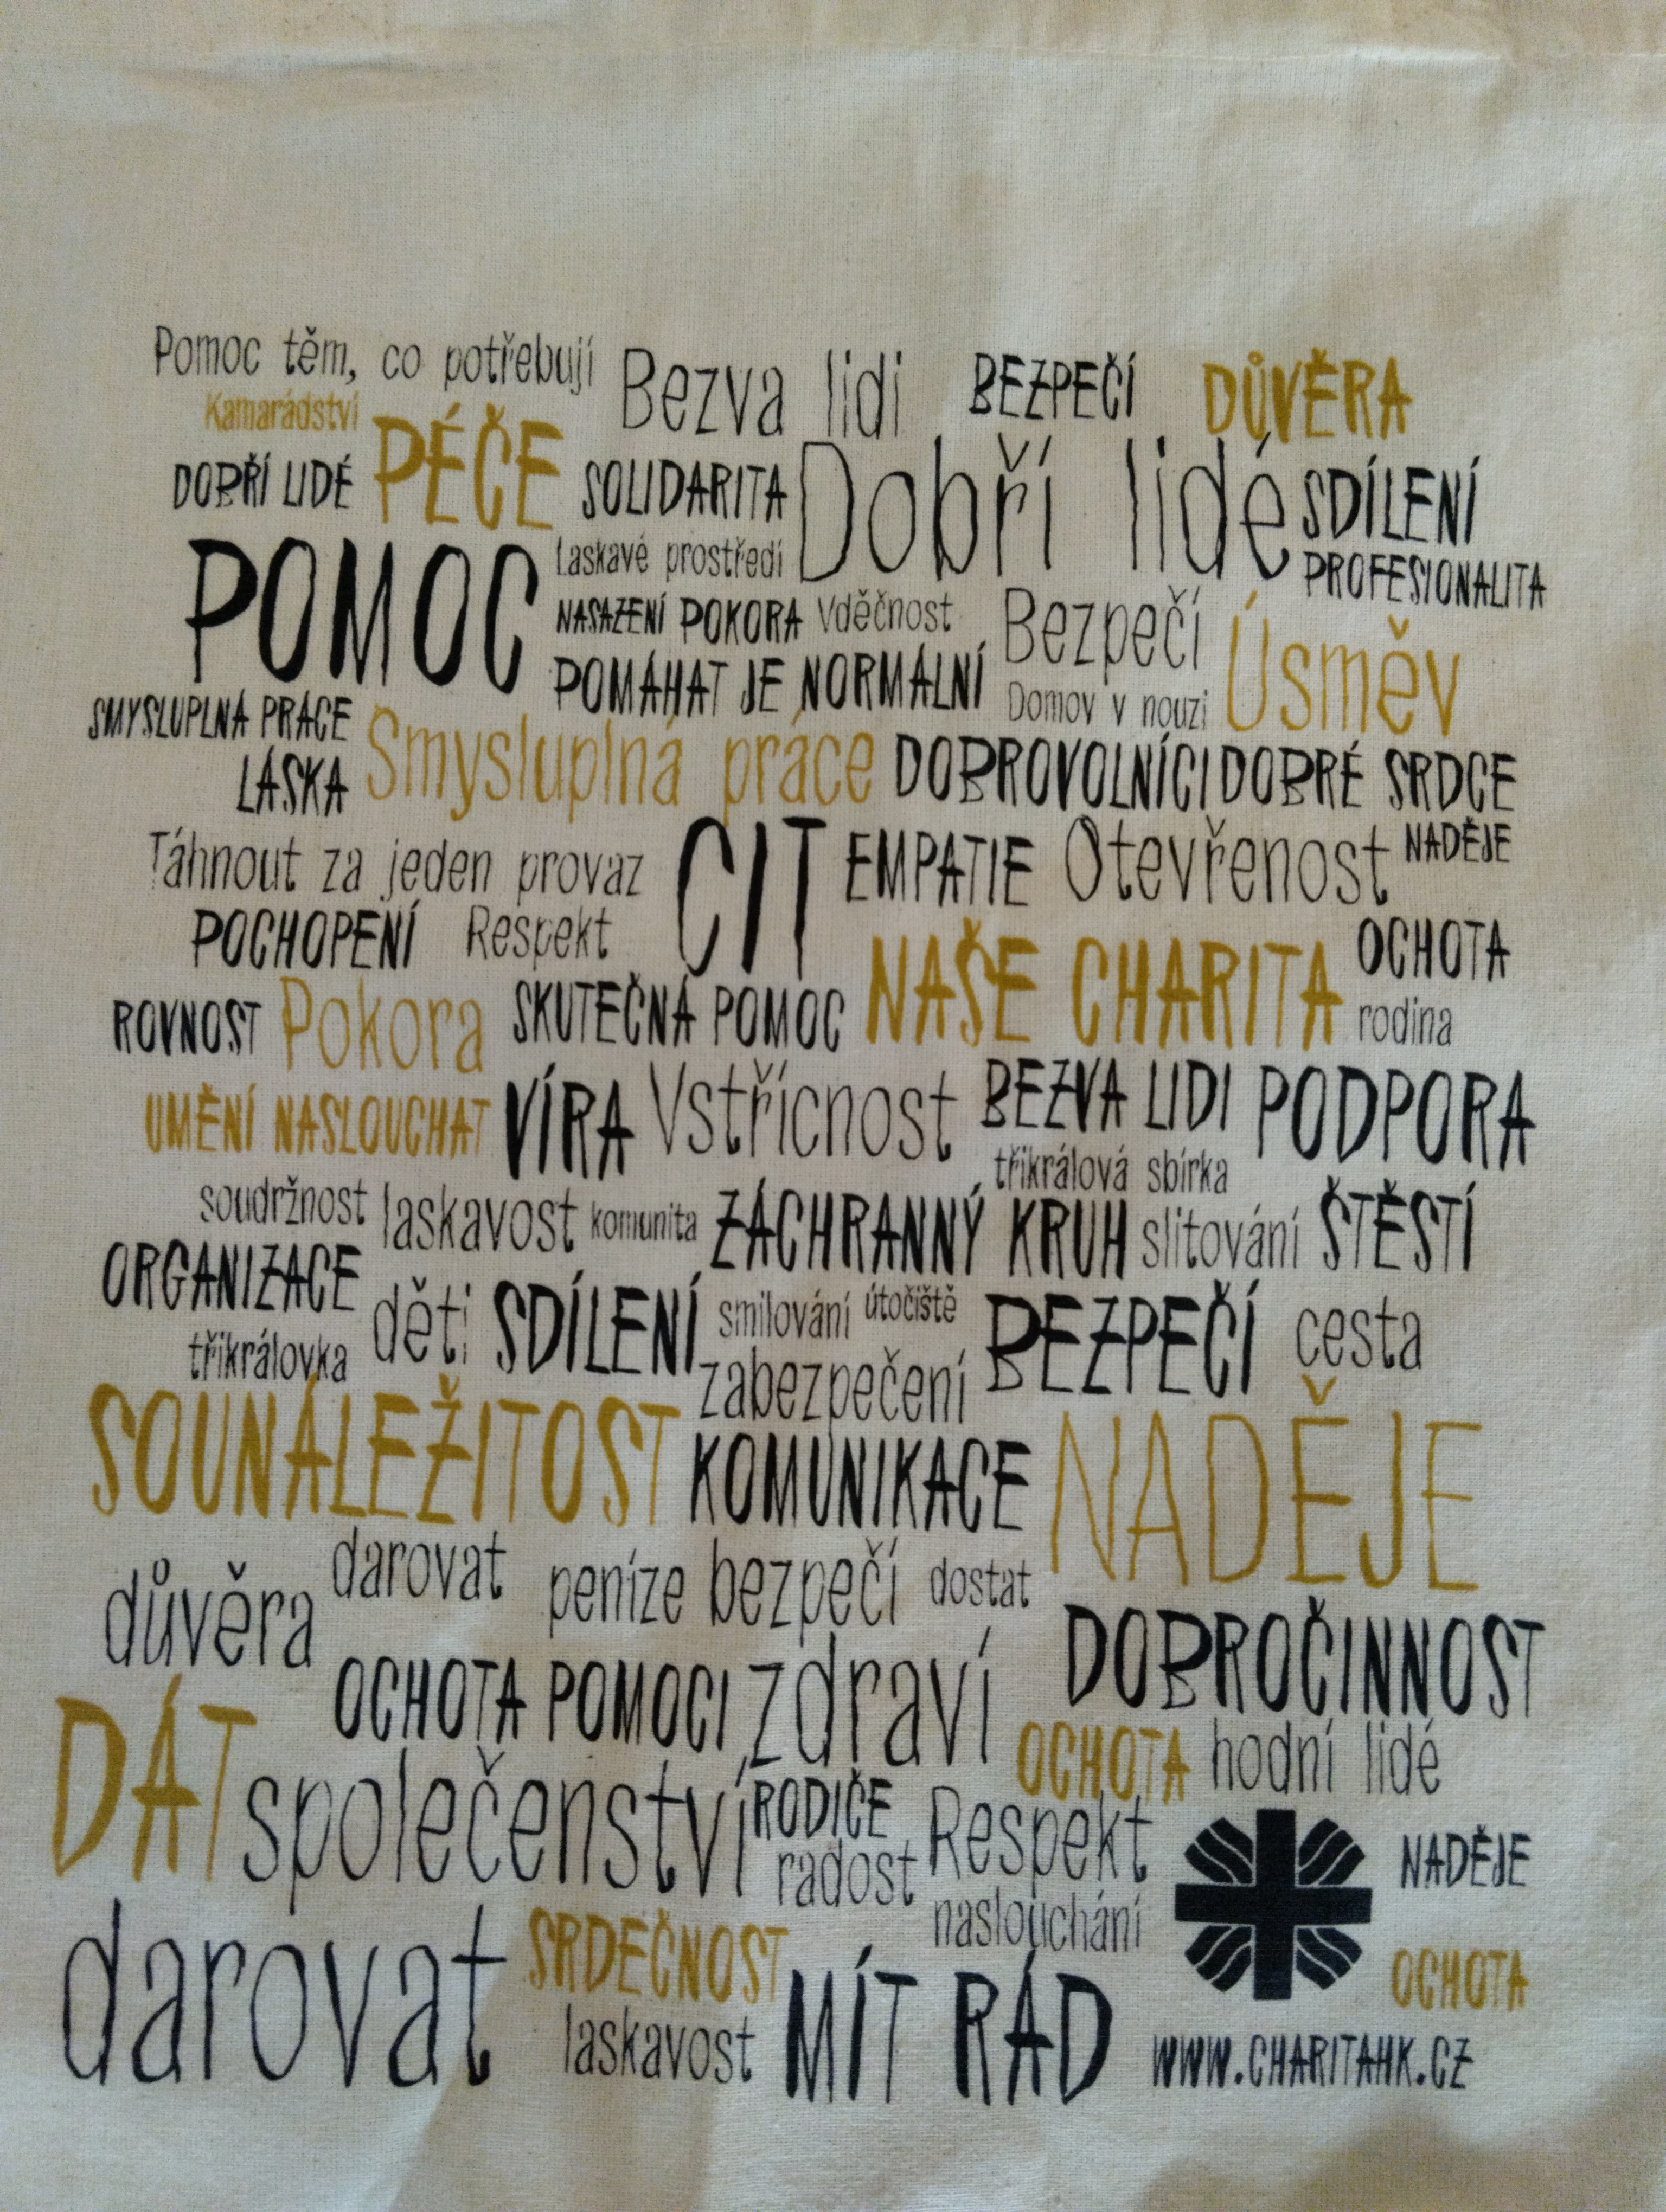 Pomoc těm, co potřebují Bezva lidi BEZPEČÍ DŮVĚRA
Kamarádství
DOBŘÍ LIDÉ PÉČE SOLIDARITA Dobří lidé SDÍLENÍ
POMOC Laskavé prostředí PROFESIONALITA
NASAZENÍ POKORA Vděčnost Bezpečí Úsměv
POMÁHAT JE NORMÁLNÍ Domov v nouzi
SMYSLUPLNÁ PRÁCE Smysluplná práce DOBROVOLNÍCI DOBRÉ SRDCE
LÁSKA
Táhnout za jeden provaz CIT EMPATIE Otevřenost NADĚJE
POCHOPENÍ Respekt NAŠE CHARITA OCHOTA
ROVNOST Pokora SKUTEČNÁ POMOC rodina
UMĚNÍ NASLOUCHAT VÍRA Vstřícnost BEZVA LIDI PODPORA
tříkrálová sbírka
soudržnost laskavost komunita ZÁCHRANNÝ KRUH slitování ŠTĚSTÍ
ORGANIZACE děti SDÍLENÍ smilování útočiště BEZPEČÍ cesta
tříkrálovka zabezpečení
SOUNÁLEŽITOST KOMUNIKACE NADĚJE
důvěra darovat peníze bezpečí dostat
OCHOTA POMOCI zdraví DOBROČINNOST
DÁT společenství OCHOTA hodní lidé
RODIČE Respekt NADĚJE
radost
naslouchání
darovat SRDEČNOST OCHOTA
laskavost MÍT RÁD WWW.CHARITAHK.CZ